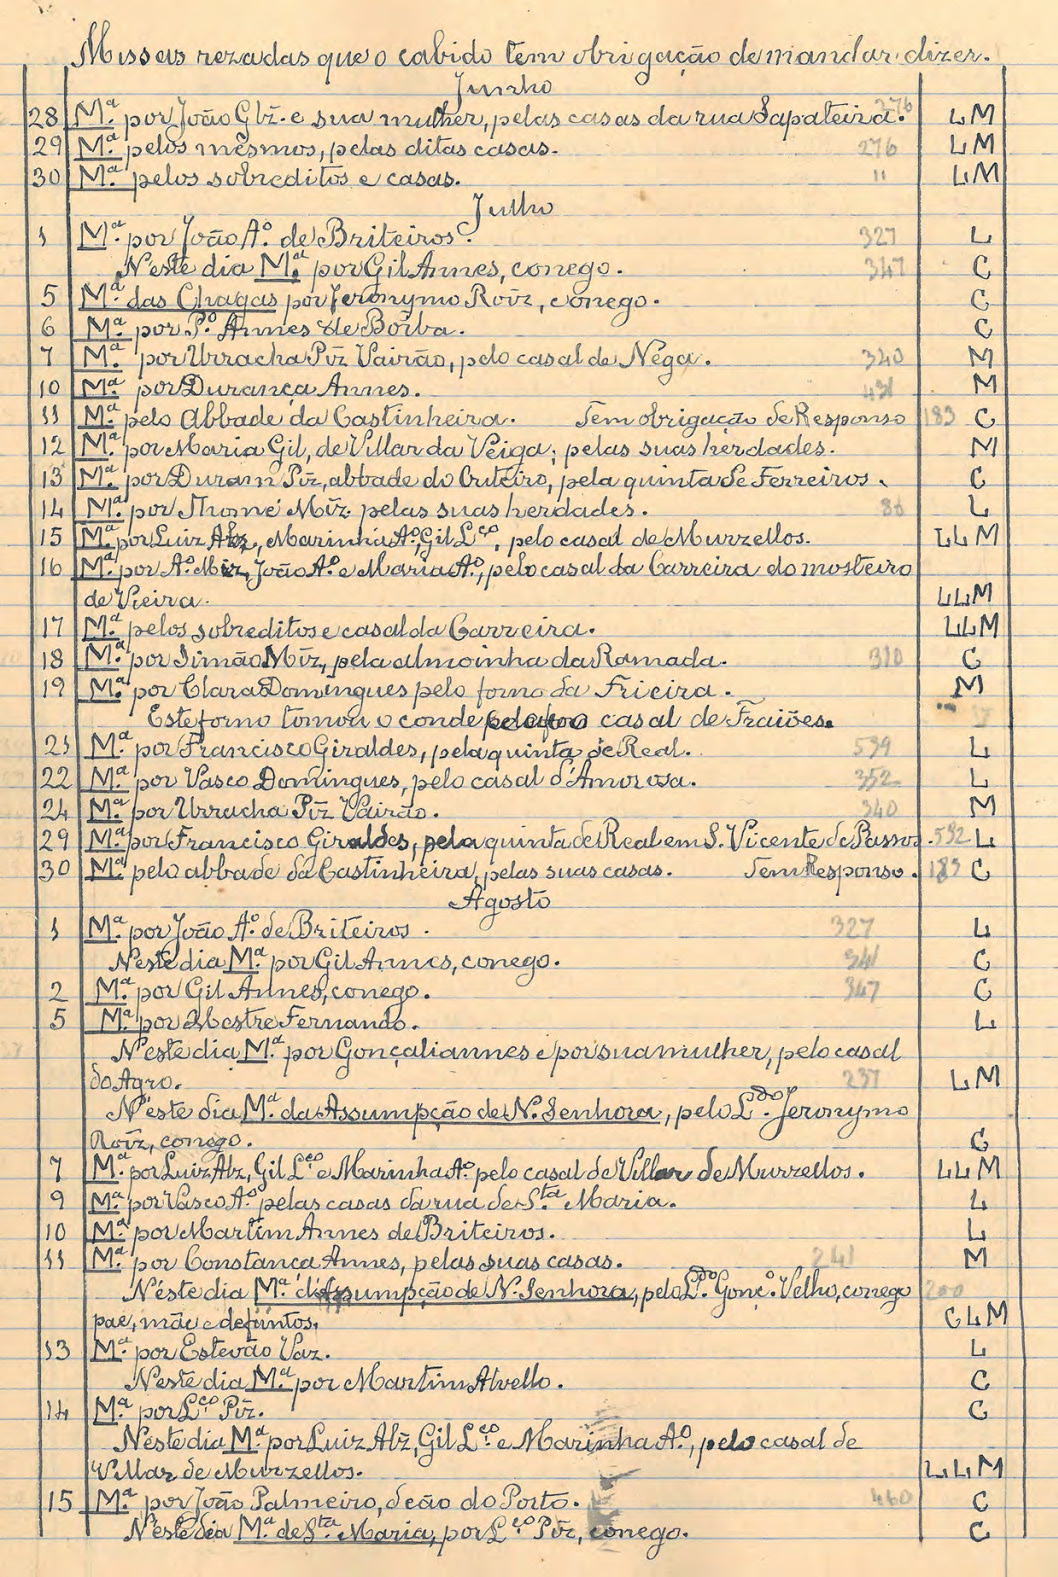 Missas rezadas que o cabido tem obrigação de mandar dizer.
Junho
28 M.ª por João Glz. e sua mulher, pelas casas da rua Sapateira. 276 LM
29 M.ª pelos mesmos, pelas ditas casas. 276 LM
30 M.ª pelos sobreditos e casas. " LM
Julho
1 M.ª por João A.º de Briteiros. 327 L
Neste dia M.ª por Gil Annes, conego. 347 C
5 M.ª das Chagas por Jeronymo Roiz, conego. C
6 M.ª por P.º Annes de Borba. C
7 M.ª por Urracha Piz Vairão, pelo casal de Nega. 340 M
10 M.ª por Durança Annes. 431 M
11 M.ª pelo Abbade da Castinheira. Tem obrigação de Responso 183 C
12 M.ª por Maria Gil, de Villar da Veiga; pelas suas herdades. M
13 M.ª por Duram Piz, abbade do Outeiro, pela quinta de Ferreiros. C
14 M.ª por Thomé Miz. pelas suas herdades. 86 L
15 M.ª por Luiz Alz, Marinha A.º, Gil L.ço, pelo casal de Murzellos. LLM
16 M.ª por A.º Miz, João A.º e Maria A.º, pelo casal da Carreira do mosteiro
de Vieira. LLM
17 M.ª pelos sobreditos e casal da Carreira. LLM
18 M.ª por Simão Miz, pela almoinha da Ramada. 310 C
19 M.ª por Clara Domingues pelo forno da Frieira. M
Este forno tomou o conde casal de Fraiões.
21 M.ª por Francisco Giraldes, pela quinta de Real. 539 L
22 M.ª por Vasco Domingues, pelo casal d'Amorosa. 352 L
24 M.ª por Urracha Piz Vairão. 340 M
29 M.ª por Francisco Giraldes, pela quinta de Real em S. Vicente de Passos. 532 L
30 M.ª pelo abbade da Castinheira, pelas suas casas. Tem Responso. 183 C
Agosto
1 M.ª por João A.º de Briteiros. 327 L
Neste dia M.ª por Gil Annes, conego. C
2 M.ª por Gil Annes, conego. 347 C
5 M.ª por Mestre Fernando. L
N'este dia M.ª por Gonçaliannes e por sua mulher, pelo casal
do Agro. 237 LM
N'este dia M.ª da Assumpção de N. Senhora, pelo L.do Jeronymo
Roiz, conego. C
7 M.ª por Luiz Alz, Gil L.ço e Marinha A.º pelo casal de Villar de Murzellos. LLM
9 M.ª por Vasco A.º pelas casas da rua de S.ta Maria. L
10 M.ª por Martim Annes de Briteiros. L
11 M.ª por Constança Annes, pelas suas casas. 241 M
N'este dia M.ª d'Assumpção de N. Senhora, pelo L.do Gonç.º Velho, conego 200
pae, mãe e defuntos. CLM
13 M.ª por Estevão Vaz. L
Neste dia M.ª por Martim Alvello. C
14 M.ª por L.ço Piz. C
Neste dia M.ª por Luiz Alz, Gil L.ço e Marinha A.º, pelo casal de
Villar de Murzellos. LLM
15 M.ª por João Palmeiro, deão do Porto. 460 C
N'este dia M.ª de S.ta Maria, por L.ço Piz, conego. C